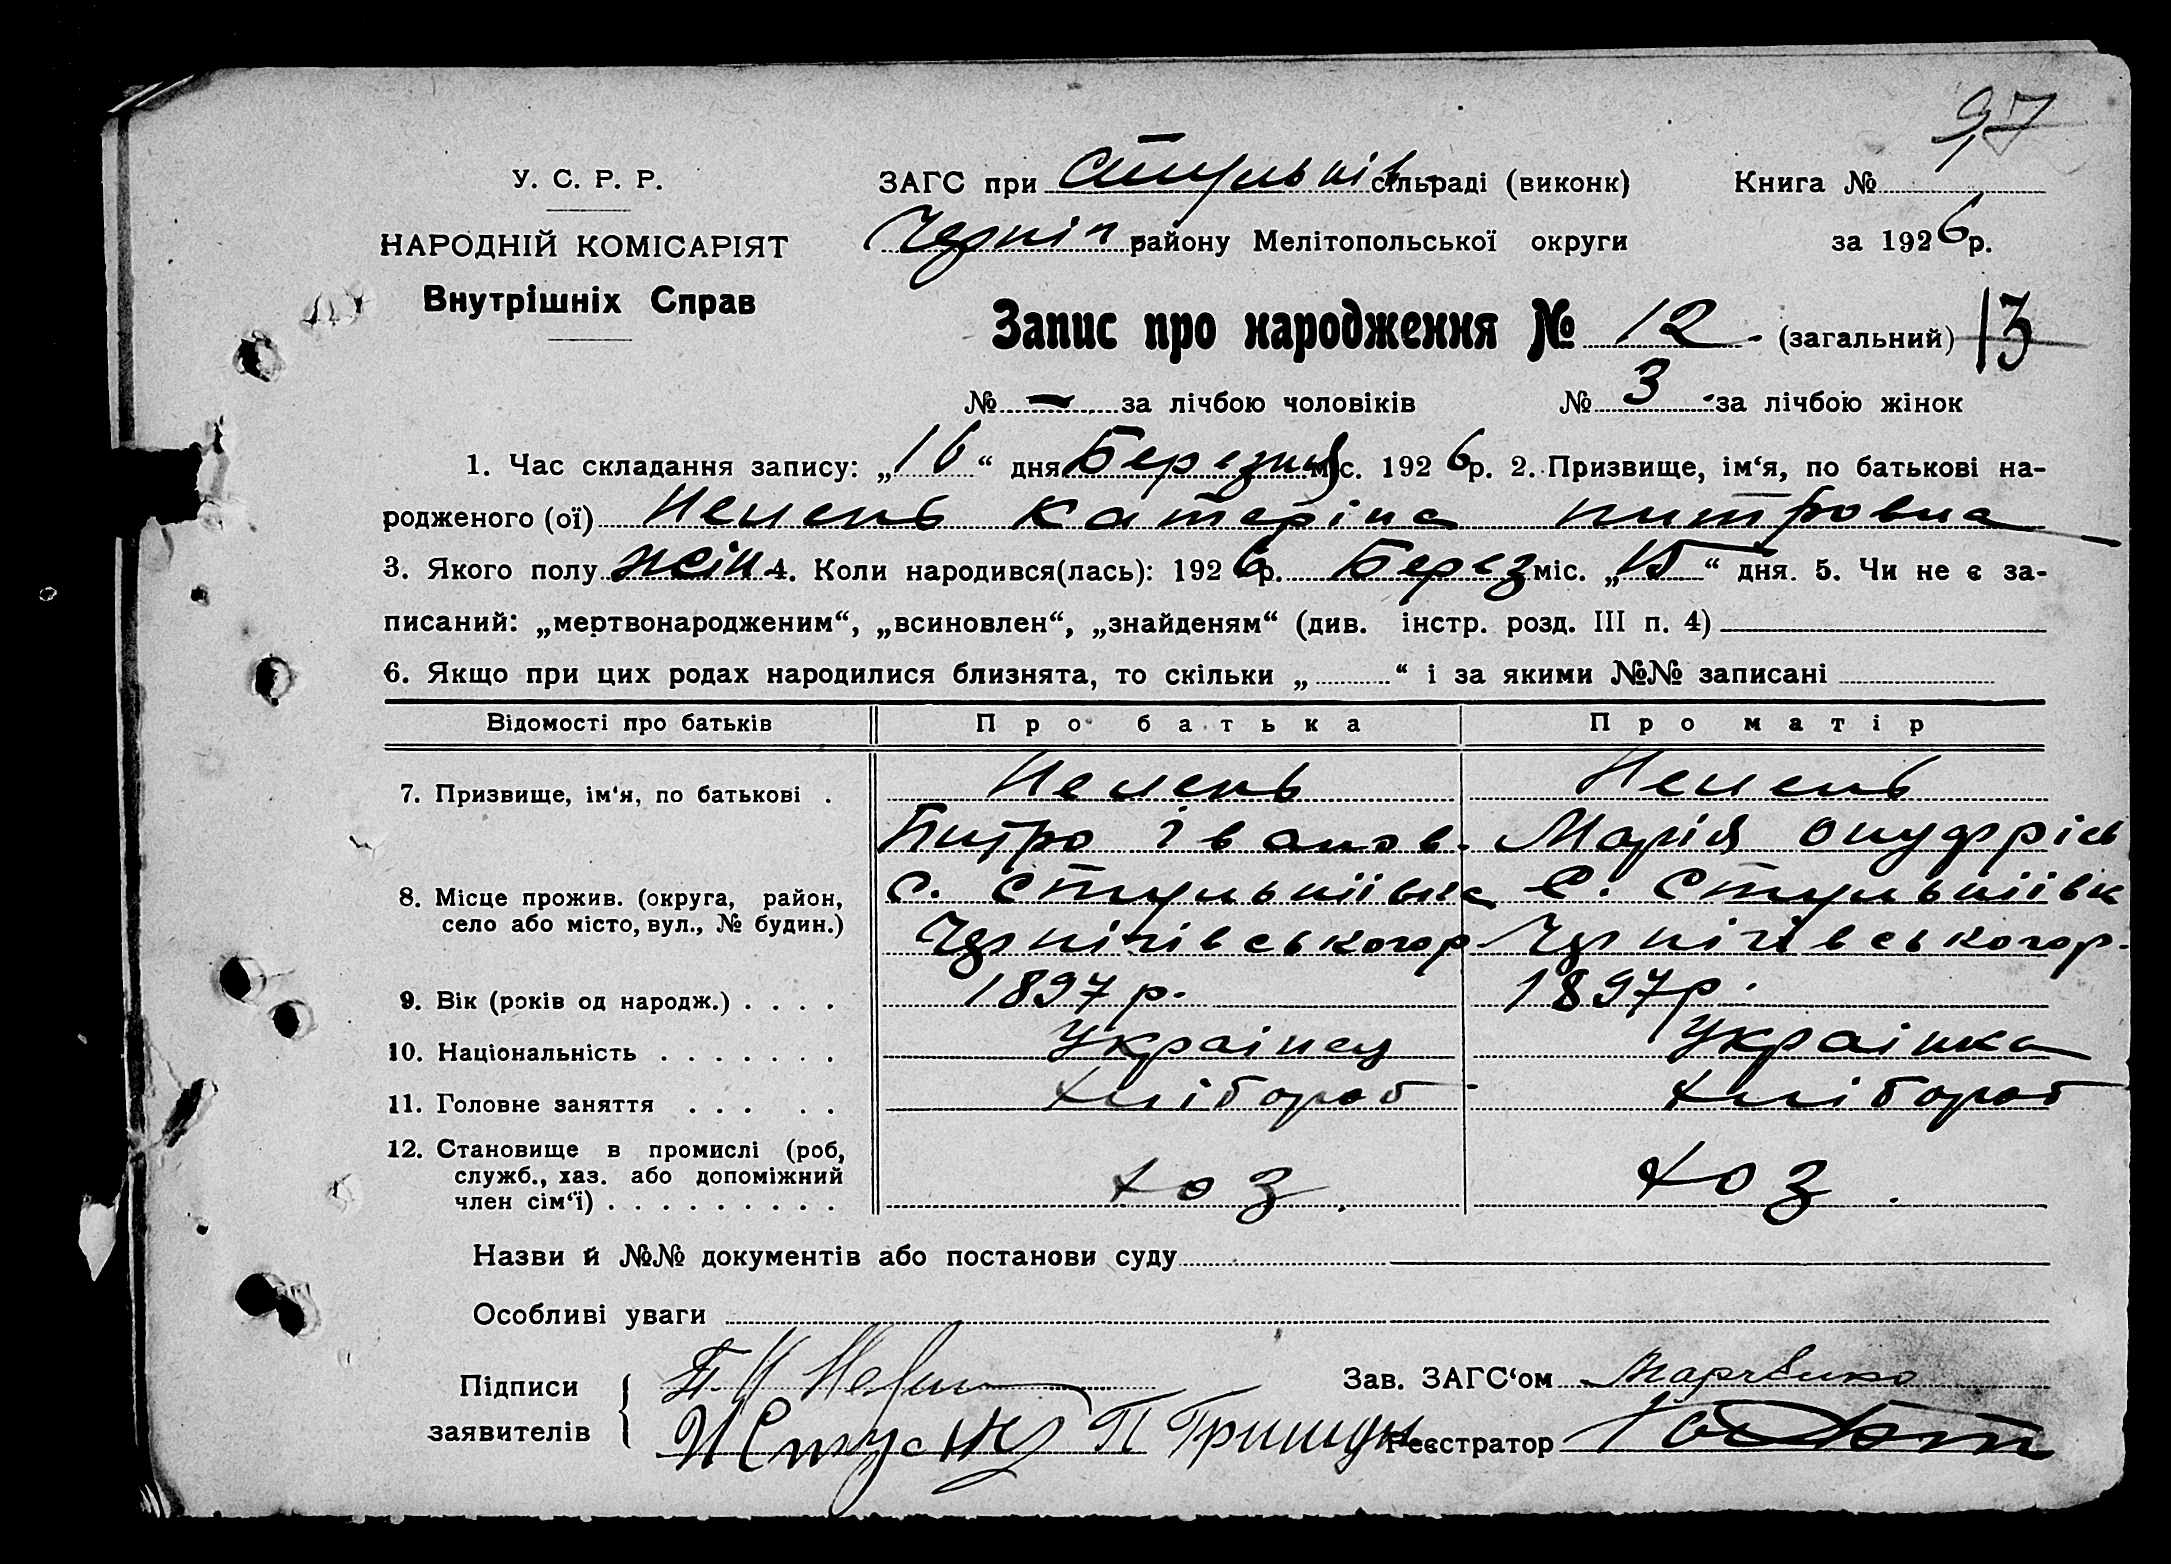 97
У. С. Р. Р.
НАРОДНІЙ КОМІСАРІЯТ
Внутрішніх Справ
ЗАГС при Стульнів сільраді (виконк) Книга №
Черніг району Мелітопольської округи за 1926 р.
Запис про народження № 12 (загальний) 13
№ — за лічбою чоловіків № 3 за лічбою жінок
1. Час складання запису: „16“ дня Березня міс. 1926 р. 2. Призвище, ім‘я, по батькові на-
родженого (ої) Катеріна Питровна
3. Якого полу жін 4. Коли народився(лась): 1926 р. Берез міс. „15“ дня. 5. Чи не є за-
писаний: „мертвонародженим“, „всиновлен“, „знайденям“ (див. інстр. розд. III п. 4)
6. Якщо при цих родах народилися близнята, то скільки „ “ і за якими №№ записані
Відомості про батьків Про батька Про матір
7. Призвище, ім‘я, по батькові
Питро Іванов. Марія Онуфрієв
8. Місце прожив. (округа, район, село або місто, вул., № будин.)
с. Стульніївка с. Стульніївк
Чернігівського р. Чернігівського р.
9. Вік (років од народж.) . . . . 1897 р. 1897 р.
10. Національність . . . . . . . Українец Українка
11. Головне заняття . . . . . хлібороб хлібороб
12. Становище в промислі (роб, служб., хаз. або допоміжний член сім‘ї) . . . . . . . . . хоз. хоз.
Назви й №№ документів або постанови суду
Особливі уваги
Підписи заявителів
П Грищун
Зав. ЗАГС‘ом Марченко
Реєстратор